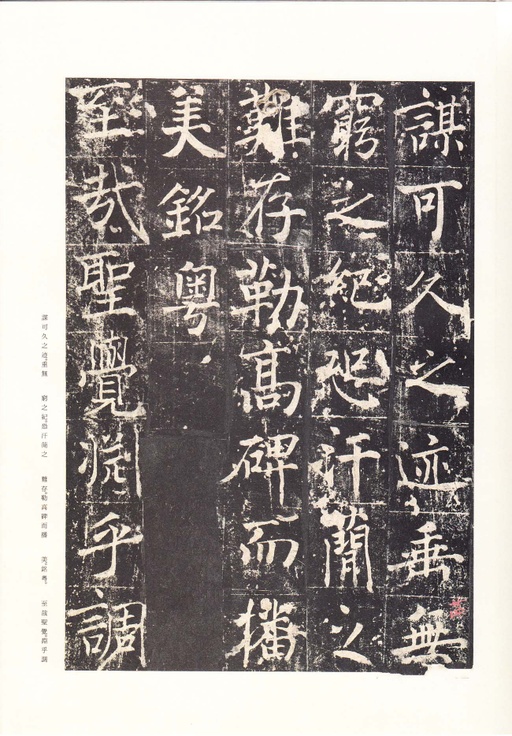 謀可久之迹垂無
窮之紀恐汗簡之
難存勒高碑而播
美銘粤
至哉聖覺淵乎調
謀可久之迹垂無　窮之紀恐汗簡之　難存勒高碑而播　美銘粤　至哉聖覺淵乎調